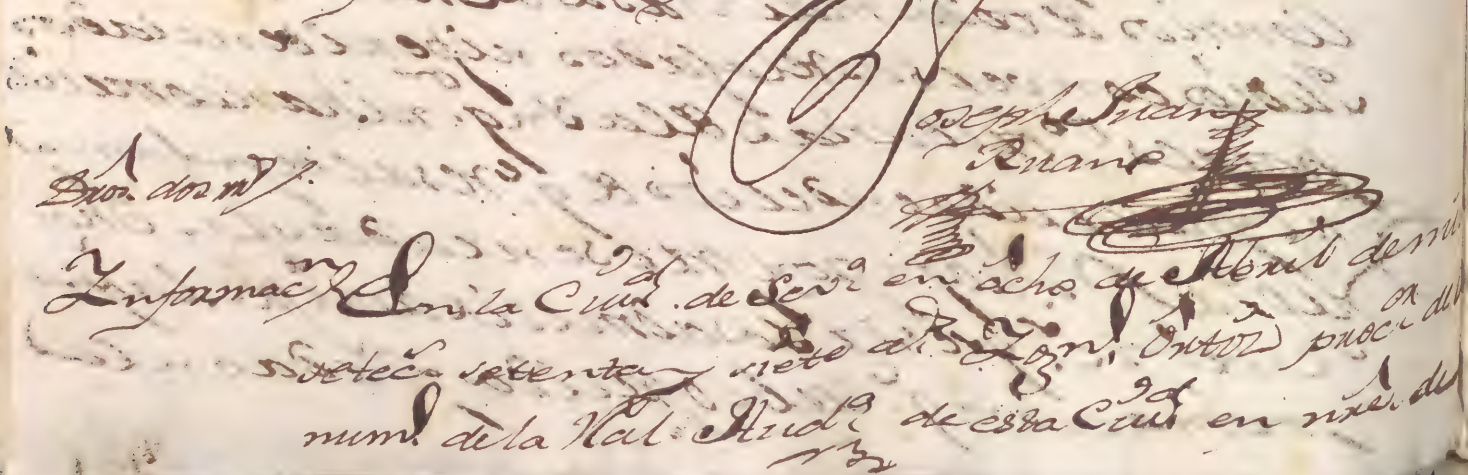 Joseph Juan
Ruano
Dros. dos m.s
Informac.n En la Ciu.d de Sev.a en ocho de Abril de mil
setec.s setenta y siete a.s Ortiz proc.or del
num.o de la R.al Aud.a de essa Ciu.d en nre. de